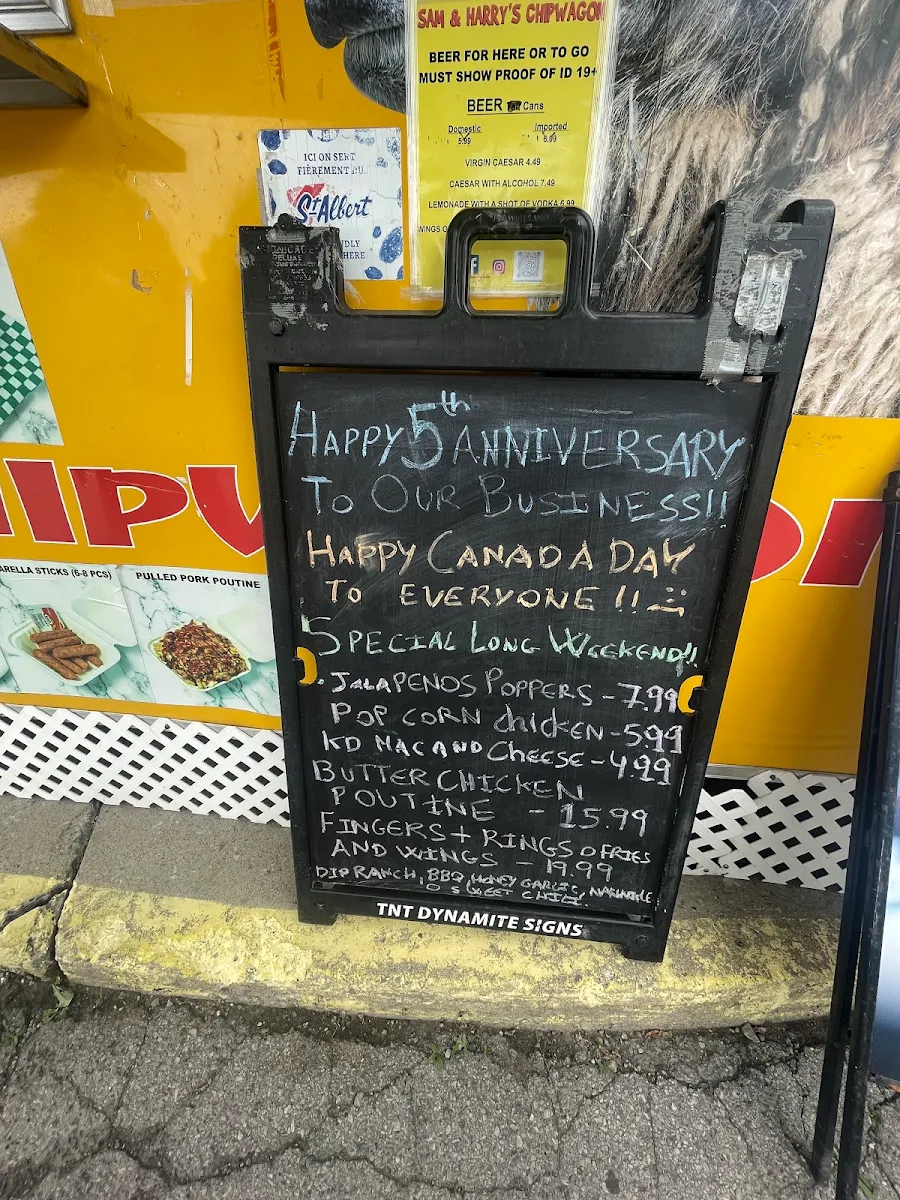 SAM & HARRY'S CHIPWAGON
BEER FOR HERE OR TO GO
MUST SHOW PROOF OF ID 19+
BEER Cans
Domestic Imported
5.99 6.99
VIRGIN CAESAR 4.49
CAESAR WITH ALCOHOL 7.49
LEMONADE WITH A SHOT OF VODKA 6.99
WINGS
ICI ON SERT
FIÈREMENT DU
St-Albert
HERE
HAPPY 5th ANNIVERSARY
TO OUR BUSINESS!!
HAPPY CANADA DAY
TO EVERYONE !!
SPECIAL LONG WEEKEND!!
. JALAPENOS POPPERS - 7.99
POP CORN chicken - 5.99
KD MAC AND Cheese - 4.99
BUTTER CHICKEN
POUTINE - 15.99
FINGERS + RINGS O FRIES
AND WINGS - 19.99
DIP RANCH, BBQ, HONEY GARLIC,
O SWEET CHILI.
TNT DYNAMITE SIGNS
HIPW
ARELLA STICKS (6-8 PCS)
PULLED PORK POUTINE